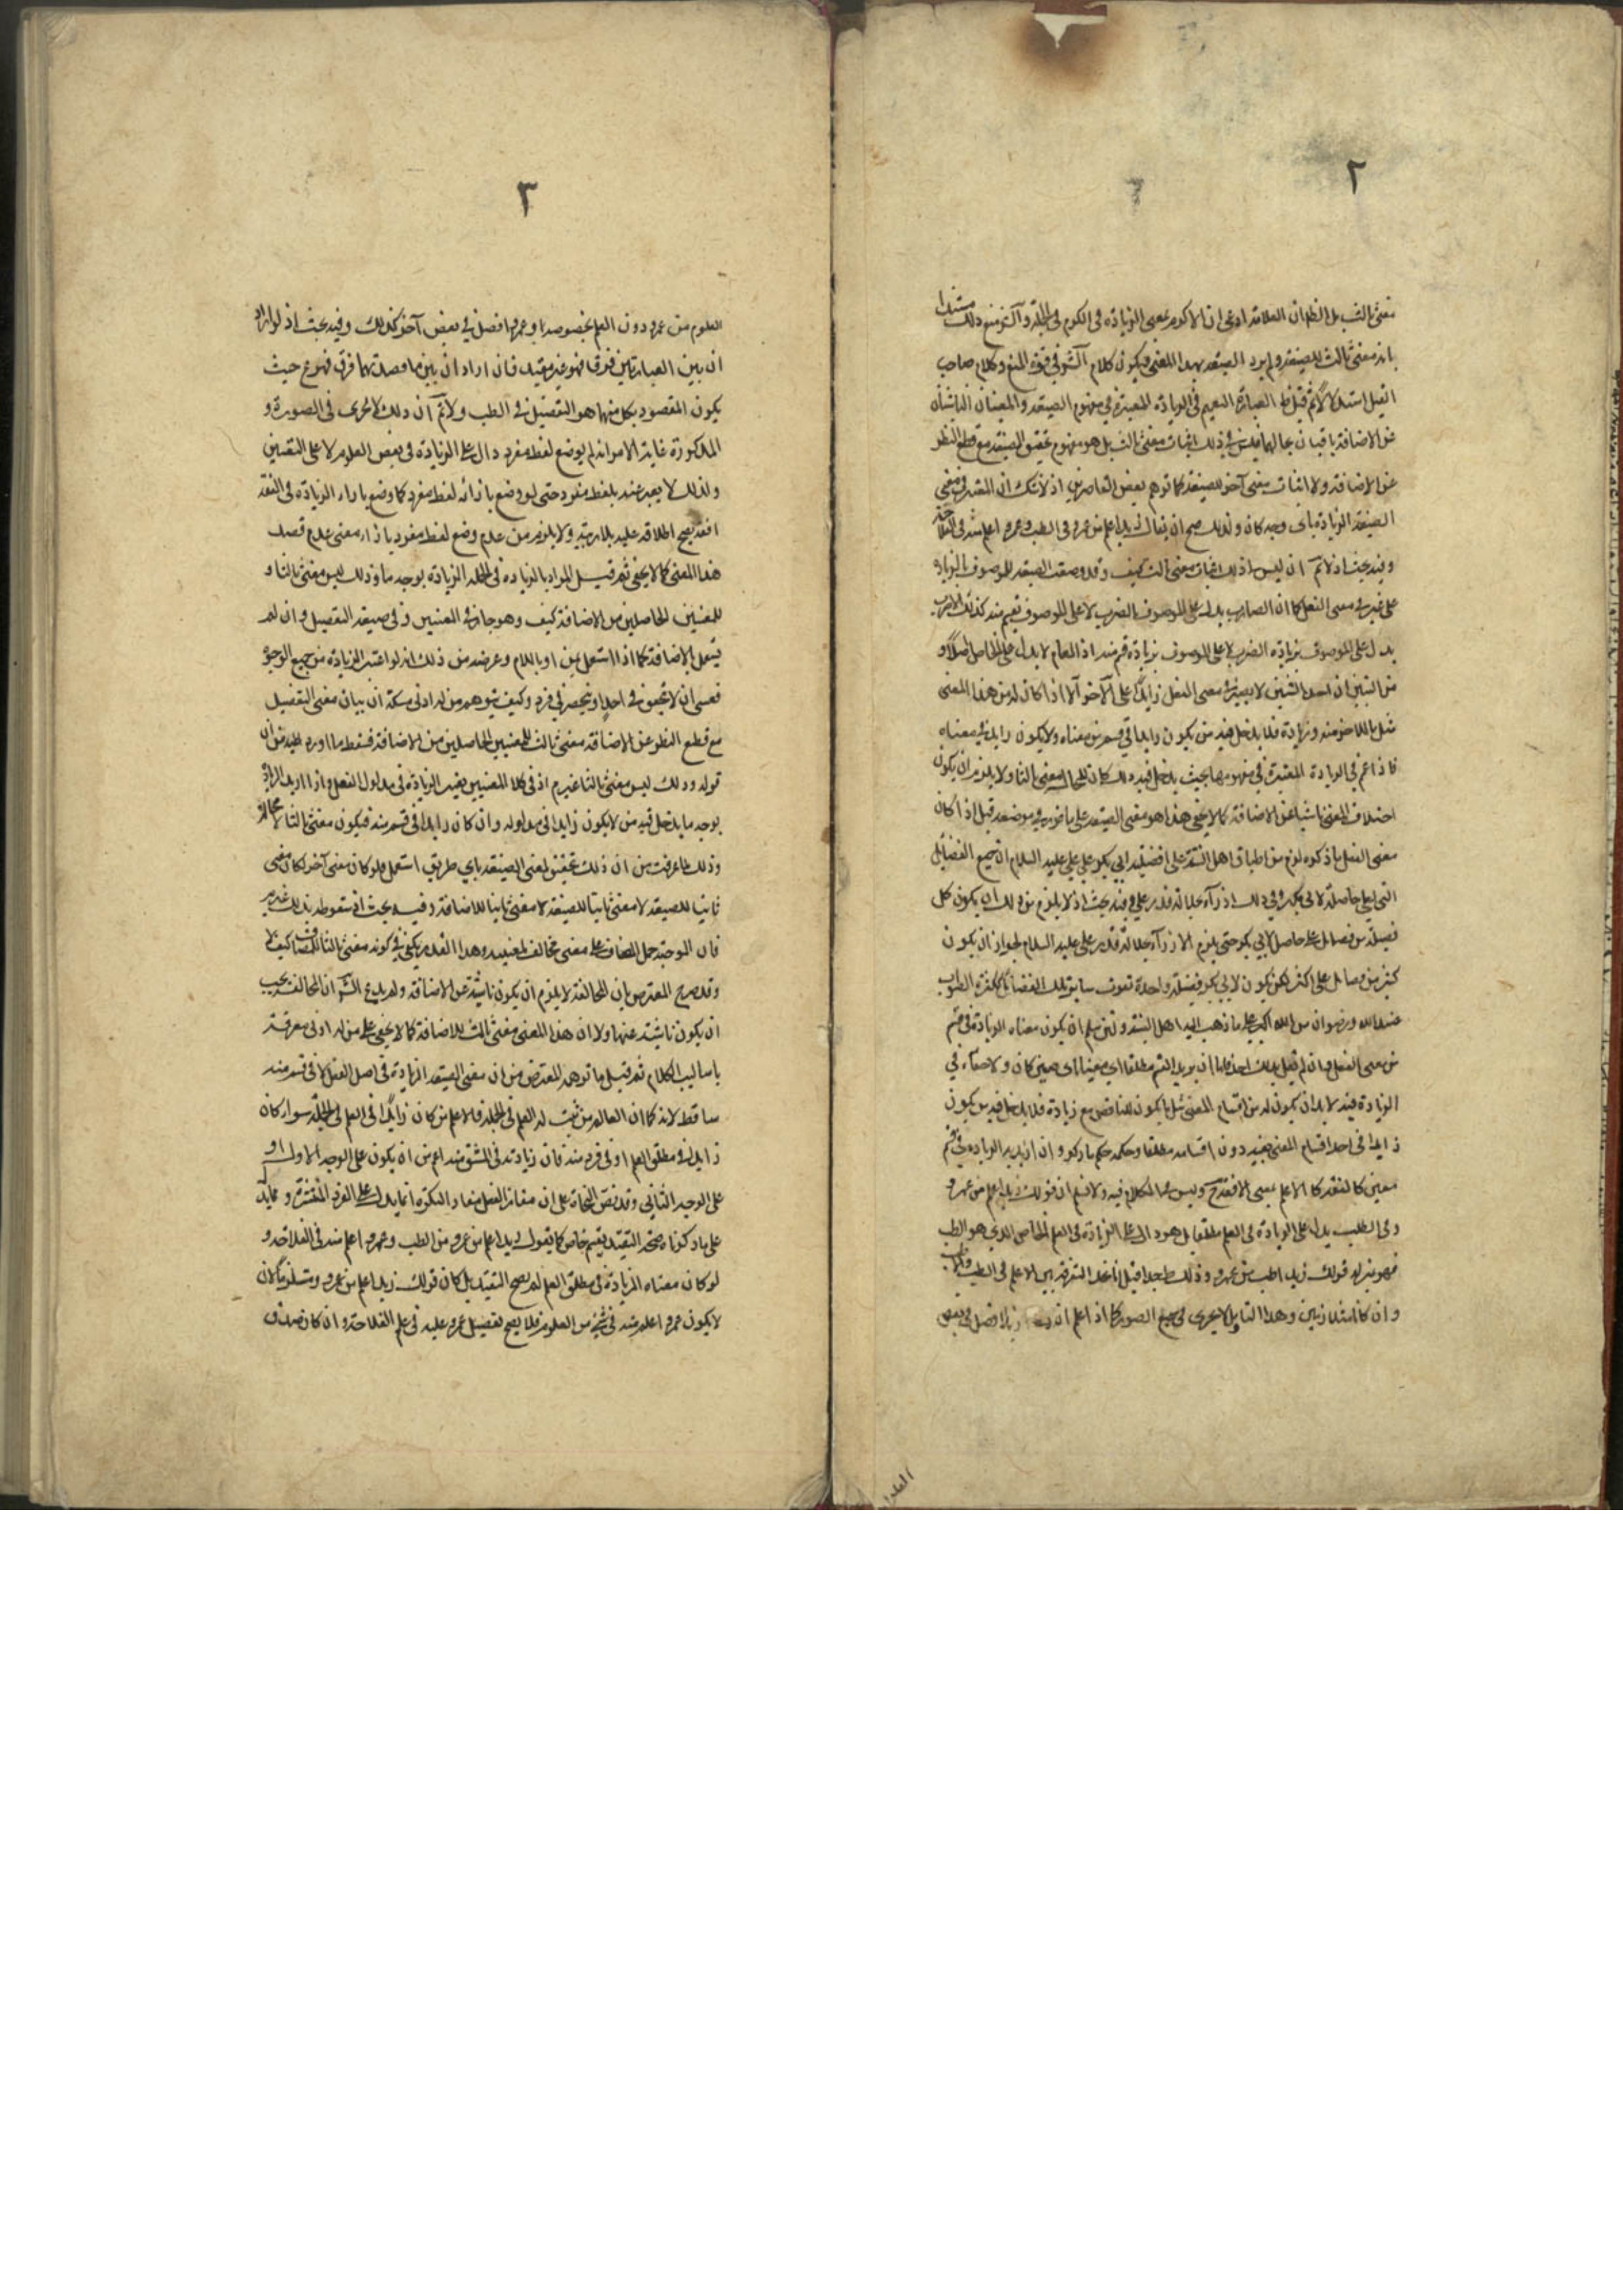 ٢
معنى ثالث بل الظاهر ان العلامة ادعى ان الاكرم بمعنى الزيادة فى الكرم فى الجملة و منع ذلك مستندا
بانه معنى ثالث للصيغة ولم يرد الصيغة بهذا المعنى فيكون كلام فى قوة المنع وكلام صاحب
القيل استدلالا ثم قيل العبارة التعميم فى الزيادة المعتبرة فى مفهوم الصيغة والمعنيان الناشئان
من الاضافة باقيان بحالهما فليس فى ذلك اثبات معنى ثالث بل هو مفهوم تحقيق الصيغة مع قطع النظر
عن الاضافة ولا اثبات معنى آخر للصيغة كما توهم بعض القاصرين اذ لا شك ان المعتبر فى معنى
الصيغة الزيادة باى وجه كان ولذلك صح ان يقال زيد اعلم من عمرو فى الطب وعمرو اعلم منه فى الفلاحة
وفيه بحث اذ لا ثم ان ليس اذ ذلك اثبات معنى ثالث كيف وقد وضعت الصيغة للموصوف بالزيادة
على غيره فى معنى الفعل كما ان الضارب يدل على الموصوف بالضرب لا على الموصوف بقسم منه كذلك الاضرب
يدل على الموصوف بزيادة الضرب لا على الموصوف بزيادة قسم منه اذ العام لا يدل على الخاص اصلا و
من البين ان احد الشيئين لا يصير فى معنى الفعل زايدا على الآخر الا اذا كان له من هذا المعنى
مثل ما للآخر منه وزيادة فلا يدخل فيه من يكون زايدا فى قسم من معناه ولا يكون زايدا فى معناه
فاذا عم فى الزيادة المعتبرة فى مفهومها بحيث يدخل فيه ذلك كان للحال معنى ثالثا ولا يلزم ان يكون
اختلاف المعنى ناشيا عن الاضافة كما لا يخفى هذا هو معنى الصيغة على ما قرر فى موضعه قيل اذا كان
معنى الفعل ما ذكره لزم من اطباق اهل السنة على افضلية ابى بكر على على عليه السلام ان جميع الفضايل
التى لعلى حاصلة لابى بكر وفى ذلك ازراء بجلالة قدر على وفيه بحث اذ لا يلزم من ذلك ان يكون كل
فضيلة من فضايل على حاصلا لابى بكر حتى يلزم الازراء بجلالة قدر على عليه السلام لجواز ان يكون
كثير من فضايل على اكثر لكن يكون لابى بكر فضيلة واحدة تفوق ساير تلك الفضايل ككثرة الثواب
عند الله ورضوان من الله اكبر على ما ذهب اليه اهل السنة ولئن سلم ان يكون معناه الزيادة فى قسم
من معنى الفعل وان لم يقل بذلك احد فاما ان يريد القسم مطلقا اى معينا اى معين كان ولا خفاء فى
الزيادة فيه لا بد ان يكون له من اقسام المعنى مثل ما يكون للناقص مع زيادة فلا يدخل فيه من يكون
زايدا فى احد اقسام المعنى بعينه دون اقسامه مطلقا وحكمه حكم ما ذكر وان اريد به الزيادة فى قسم
معين كالفقه كالاعلم بمعنى الافقه وليس مما الكلام فيه ولا نسلم ان قولك زيد اعلم من عمرو
فى الطب يدل على الزيادة فى العلم مطلقا بل هو دال على الزيادة فى العلم الخاص الذى هو الطب
فهو بمنزلة قولك زيد اطب من عمرو وذلك
وان كانا متلازمين وهذا التأويل لا يجرى فى جميع الصور كما اذا علم ان زيدا افضل فى بعض
العلوم
٣
العلوم من عمرو دون العلم بخصوصه وعمرو افضل فى بعض آخر كذلك وفيه بحث اذ لو اراد
ان بين العبارتين فرقا فهو غير مفيد فان اراد ان بين ما قصد بهما فرق فهو ع حيث
يكون المقصود بكل منهما هو التفضيل فى الطب ولا ثم ان ذلك لا يجرى فى الصورة
المذكورة غاية الامر انه لم يوضع لفظ مفرد دال على الزيادة فى بعض العلوم لا على التعيين
ولذلك لا يعبر عنه بلفظ مفرد حتى لو وضع بازائه لفظ مفرد كما وضع بازاء الزيادة فى الفقه
افقه يصح اطلاقه عليه بلا مرية ولا يلزم من عدم وضع لفظ مفرد بازاء معنى عدم قصد
هذا المعنى كما لا يخفى ثم قيل المراد بالزيادة فى الجملة الزيادة بوجه ما وذلك ليس معنى ثالثا و
للمعنيين الحاصلين من الاضافة كيف وهو جار فى المعنيين وفى صيغة التفضيل وان لم
يستعمل بالاضافة كما اذا استعمل بمن او باللام وغرضه من ذلك انه لو اعتبر الزيادة من جميع الوجوه
فعسى ان لا تتحقق فى احد او تنحصر فى فرد وكيف يتوهم من له ادنى مسكة ان بيان معنى التفضيل
مع قطع النظر عن الاضافة معنى ثالث للمعنيين الحاصلين من الاضافة فسقط ما اورد عليه من ان
قوله وذلك ليس معنى ثالثا غير م اذ فى كلا المعنيين يعتبر الزيادة فى مدلول الفعل واذا اريد الزيادة
بوجه ما يدخل فيه من لا يكون زايدا فى مدلوله وان كان زايدا فى قسم منه فيكون معنى ثالثا لا محالة
وذلك لما عرفت من ان ذلك تحقيق لمعنى الصيغة باى طريق استعمل فلو كان معنى آخر لكان معنى
ثانيا للصيغة لا معنى ثانيا للصيغة لا معنى ثانيا للاضافة وفيه بحث
فان الموجب حمل المضاف على معنى مخالف لمعنييه وهذا القدر يكفى فى كونه معنى ثالثا للمضاف كيف لا
وقد صرح المعترض بان المخالفة لا يلزم ان يكون ناشئة عن الاضافة ولم يدع ان المخالفة يجب
ان يكون ناشئة عنها ولا ان هذا المعنى معنى ثالث للاضافة كما لا يخفى على من له ادنى معرفة
باساليب الكلام ثم قيل ما توهمه المعترض من ان معنى الصيغة الزيادة فى اصل الفعل لا فى قسم منه
ساقط لانه كما ان العالم من ثبت له العلم فى الجملة فالاعلم من كان زايدا فى العلم فى الجملة سواء كان
زايدا فى مطلق العلم او فى فرد منه فان زيادته فى المشتق منه اعم من ان يكون على الوجه الاول او
على الوجه الثانى وقد نص النحاة على ان مفاد الفعل مفاد النكرة انما يدل على الفرد المنتشر ومما يدل
على ما ذكرناه صحة التقييد بقسم خاص كما يقول زيد اعلم من عمرو من الطب وعمرو اعلم منه فى الفلاحة و
لو كان معناه الزيادة فى مطلق العلم لم يصح التقييد بل كان قولك زيد اعلم من عمرو مستلزما لان
لا يكون عمرو اعلم منه فى شئ من العلوم فلا يصح تفضيل عمرو عليه فى علم الفلاحة وان كان صادق